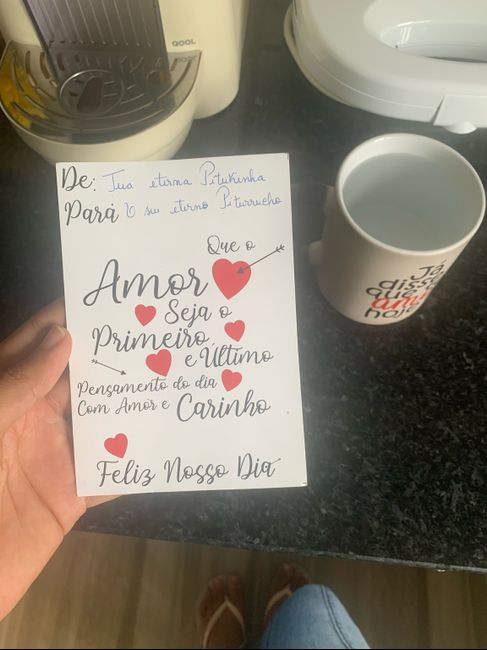 QOOL
De: Tua eterna Pitukinha
Para O seu eterno Piturrucho
Que o
Amor
Seja o
Primeiro
e Último
Pensamento do dia
Com Amor e Carinho
Feliz Nosso Dia
Já
disse
que
hoje